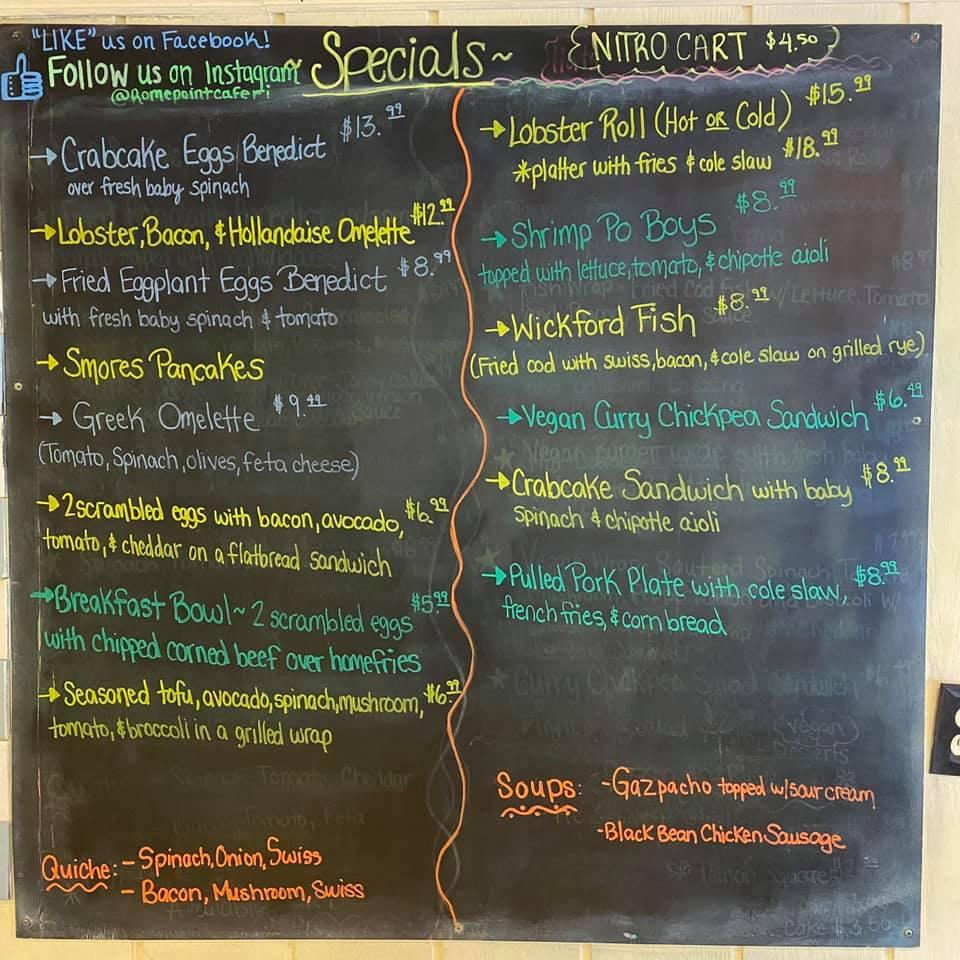 "LIKE" us on Facebook!
Follow us on Instagram
@Romepointcaferi
Specials~
NITRO CART $4.50
→Crabcake Eggs Benedict $13.99
over fresh baby spinach
→Lobster, Bacon, & Hollandaise Omelette $12.99
→Fried Eggplant Eggs Benedict $8.99
with fresh baby spinach & tomato
→Smores Pancakes
→Greek Omelette $9.49
(Tomato, Spinach, olives, feta cheese)
→2 scrambled eggs with bacon, avocado, $6.99
tomato, & cheddar on a flatbread sandwich
→Breakfast Bowl~ 2 scrambled eggs $5.99
with chipped corned beef over homefries
→Seasoned tofu, avocado, spinach, mushroom, $6.99
tomato, & broccoli in a grilled wrap
Quiche: - Spinach, Onion, Swiss
- Bacon, Mushroom, Swiss
→Lobster Roll (Hot OR Cold) $15.99
*platter with fries & cole slaw $18.99
→Shrimp Po Boys $8.99
topped with lettuce, tomato, & chipotle aioli
→Wickford Fish $8.99
(Fried cod with swiss, bacon, & cole slaw on grilled rye)
→Vegan Curry Chickpea Sandwich $6.49
→Crabcake Sandwich with baby $8.99
spinach & chipotle aioli
→Pulled Pork Plate with cole slaw, $8.99
french fries, & corn bread
Soups: -Gazpacho topped w/sour cream
-Black Bean Chicken Sausage